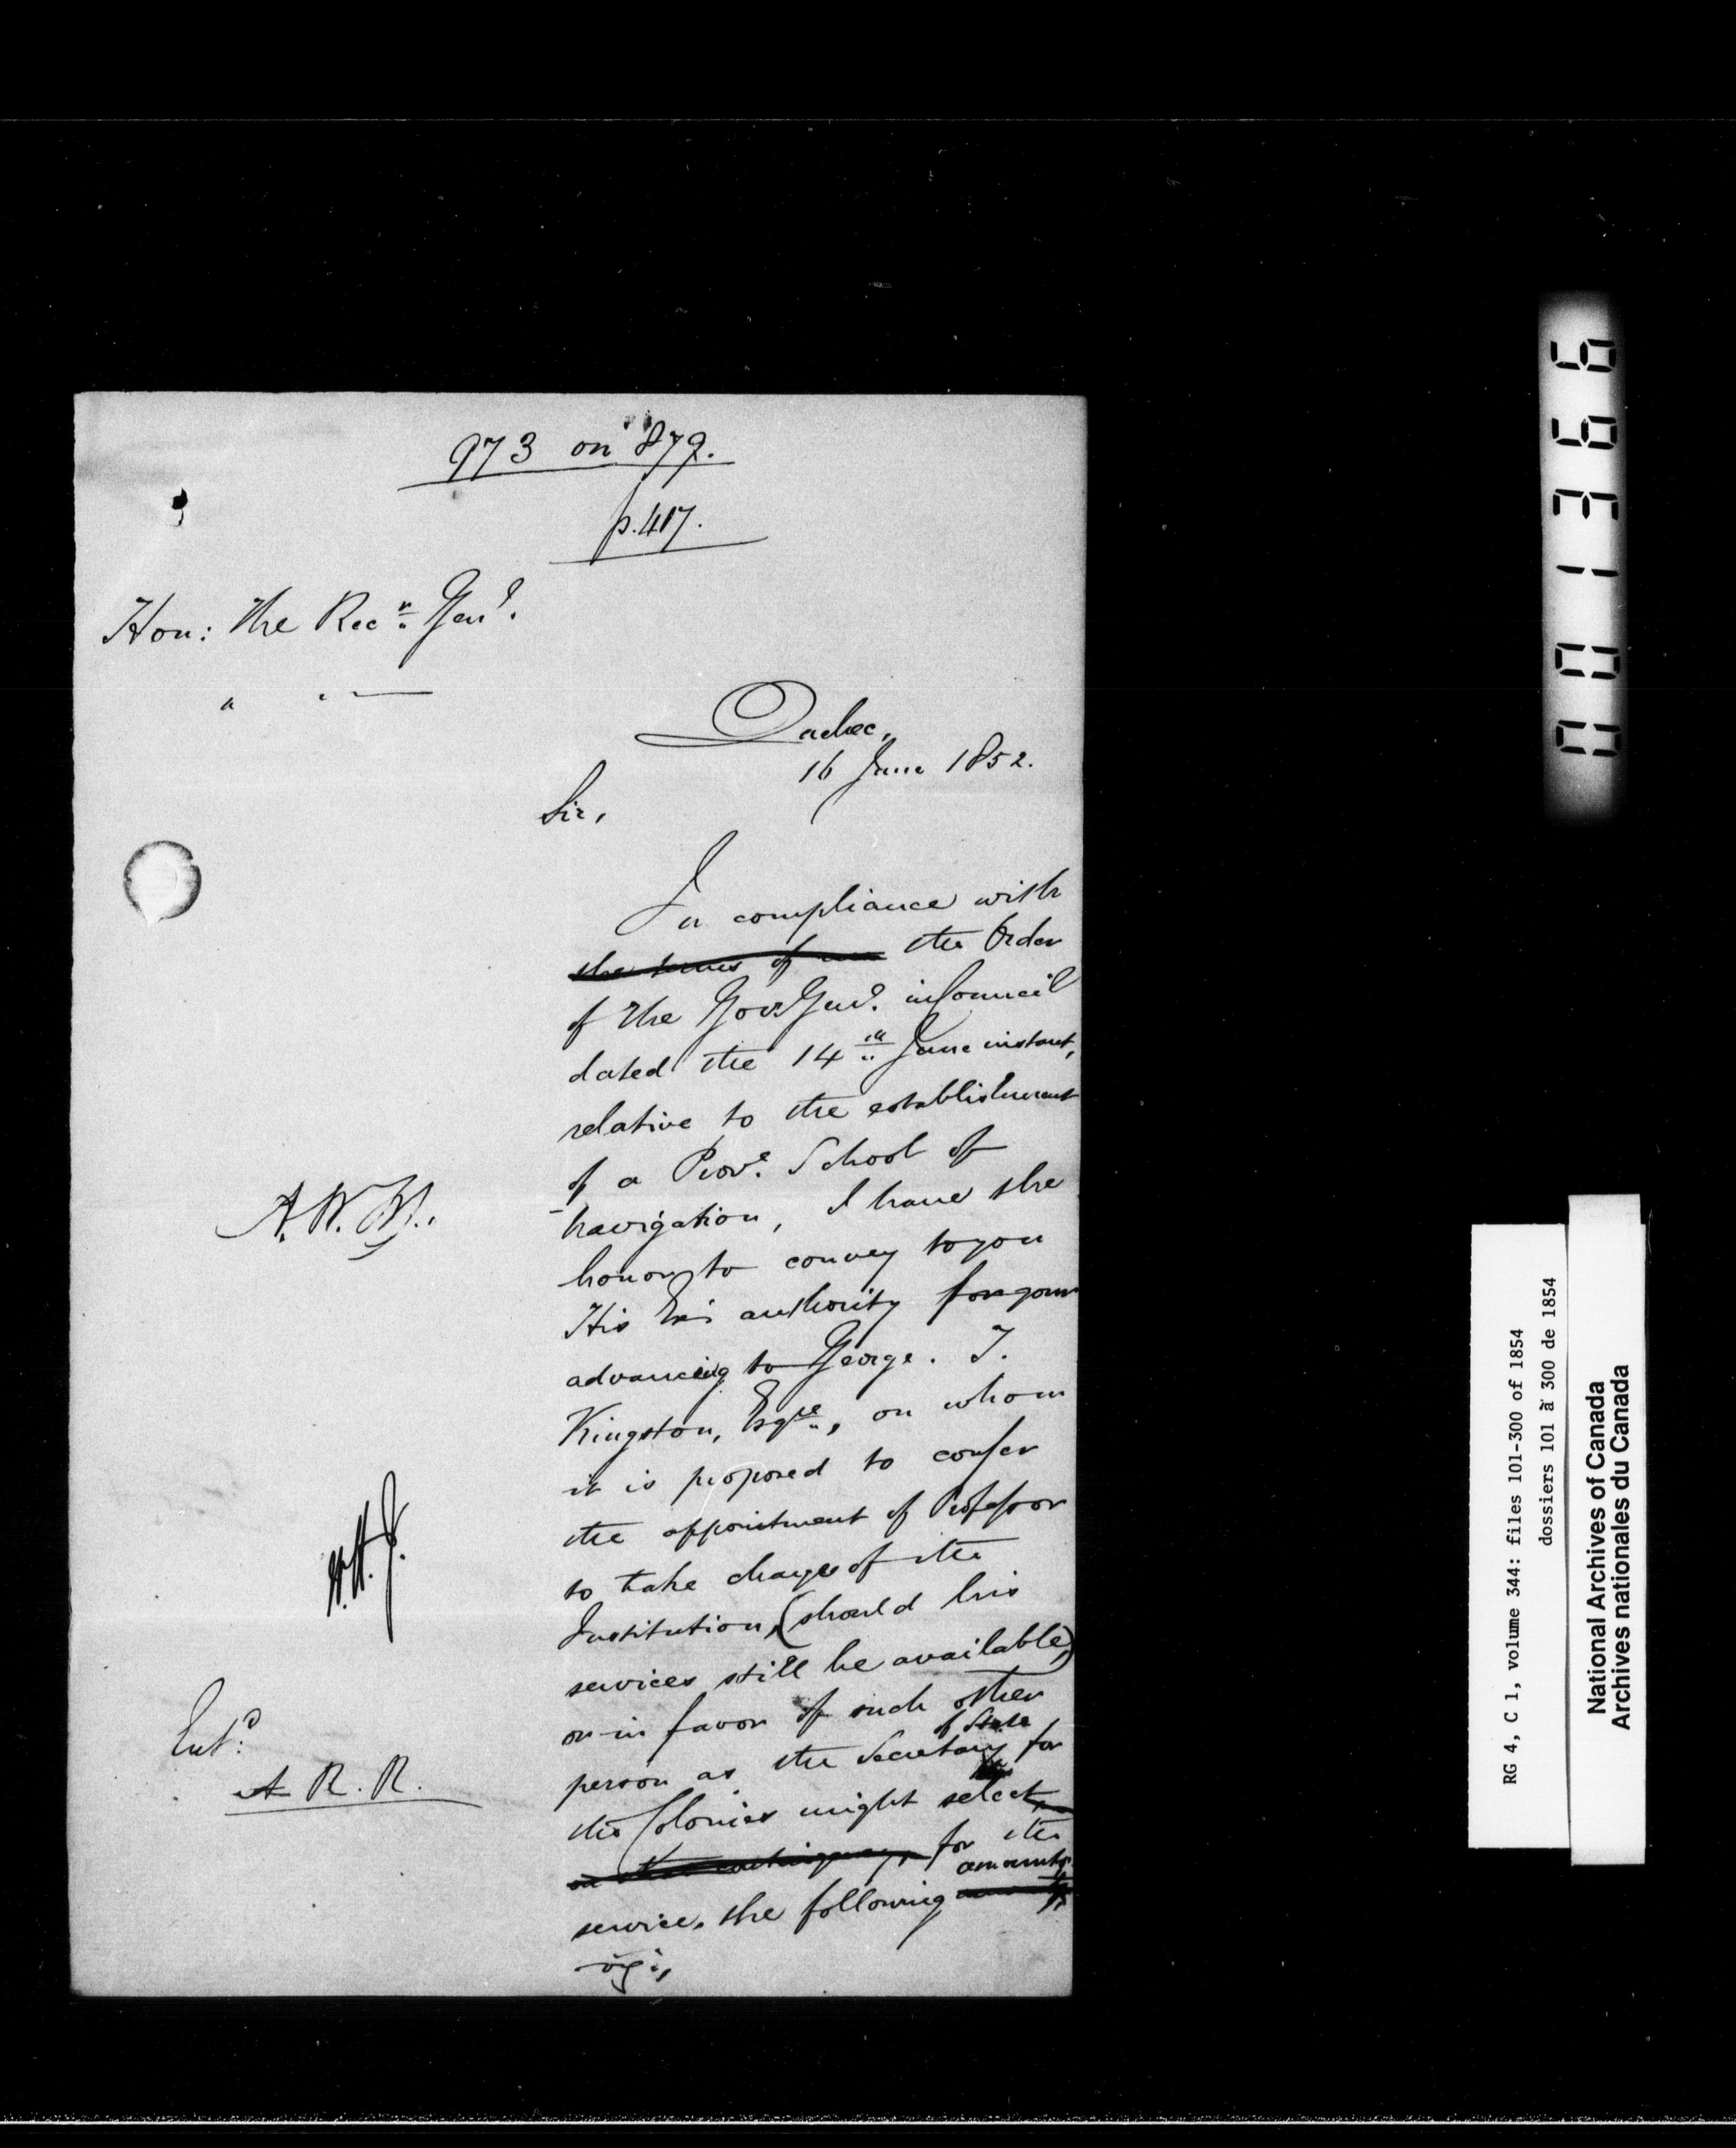 973 on 879.
p. 417.
Hon: the Recr Genl.
" " —
Quebec,
16 June 1852.
Sir,
In compliance with
the terms of an the Order
of the Gov. Genl. in Council
dated the 14th June instant,
relative to the establishment
of a Provl. School of
Navigation, I have the
honor to convey to you
His Ex's authority for your
advancing to George. T.
Kingston, Esqre, on whom
it is proposed to confer
the appointment of Professor
to take charge of the
Institution, (should his
services still be available,)
or in favor of such other
person as the Secretary of State for
the Colonies might select
on that contingency, for the
service, the following amounts
viz:,
A. N. M.
W. H. J.
Entd:
A R. R.
001366
RG 4, C 1, volume 344: files 101-300 of 1854
dossiers 101 à 300 de 1854
National Archives of Canada
Archives nationales du Canada